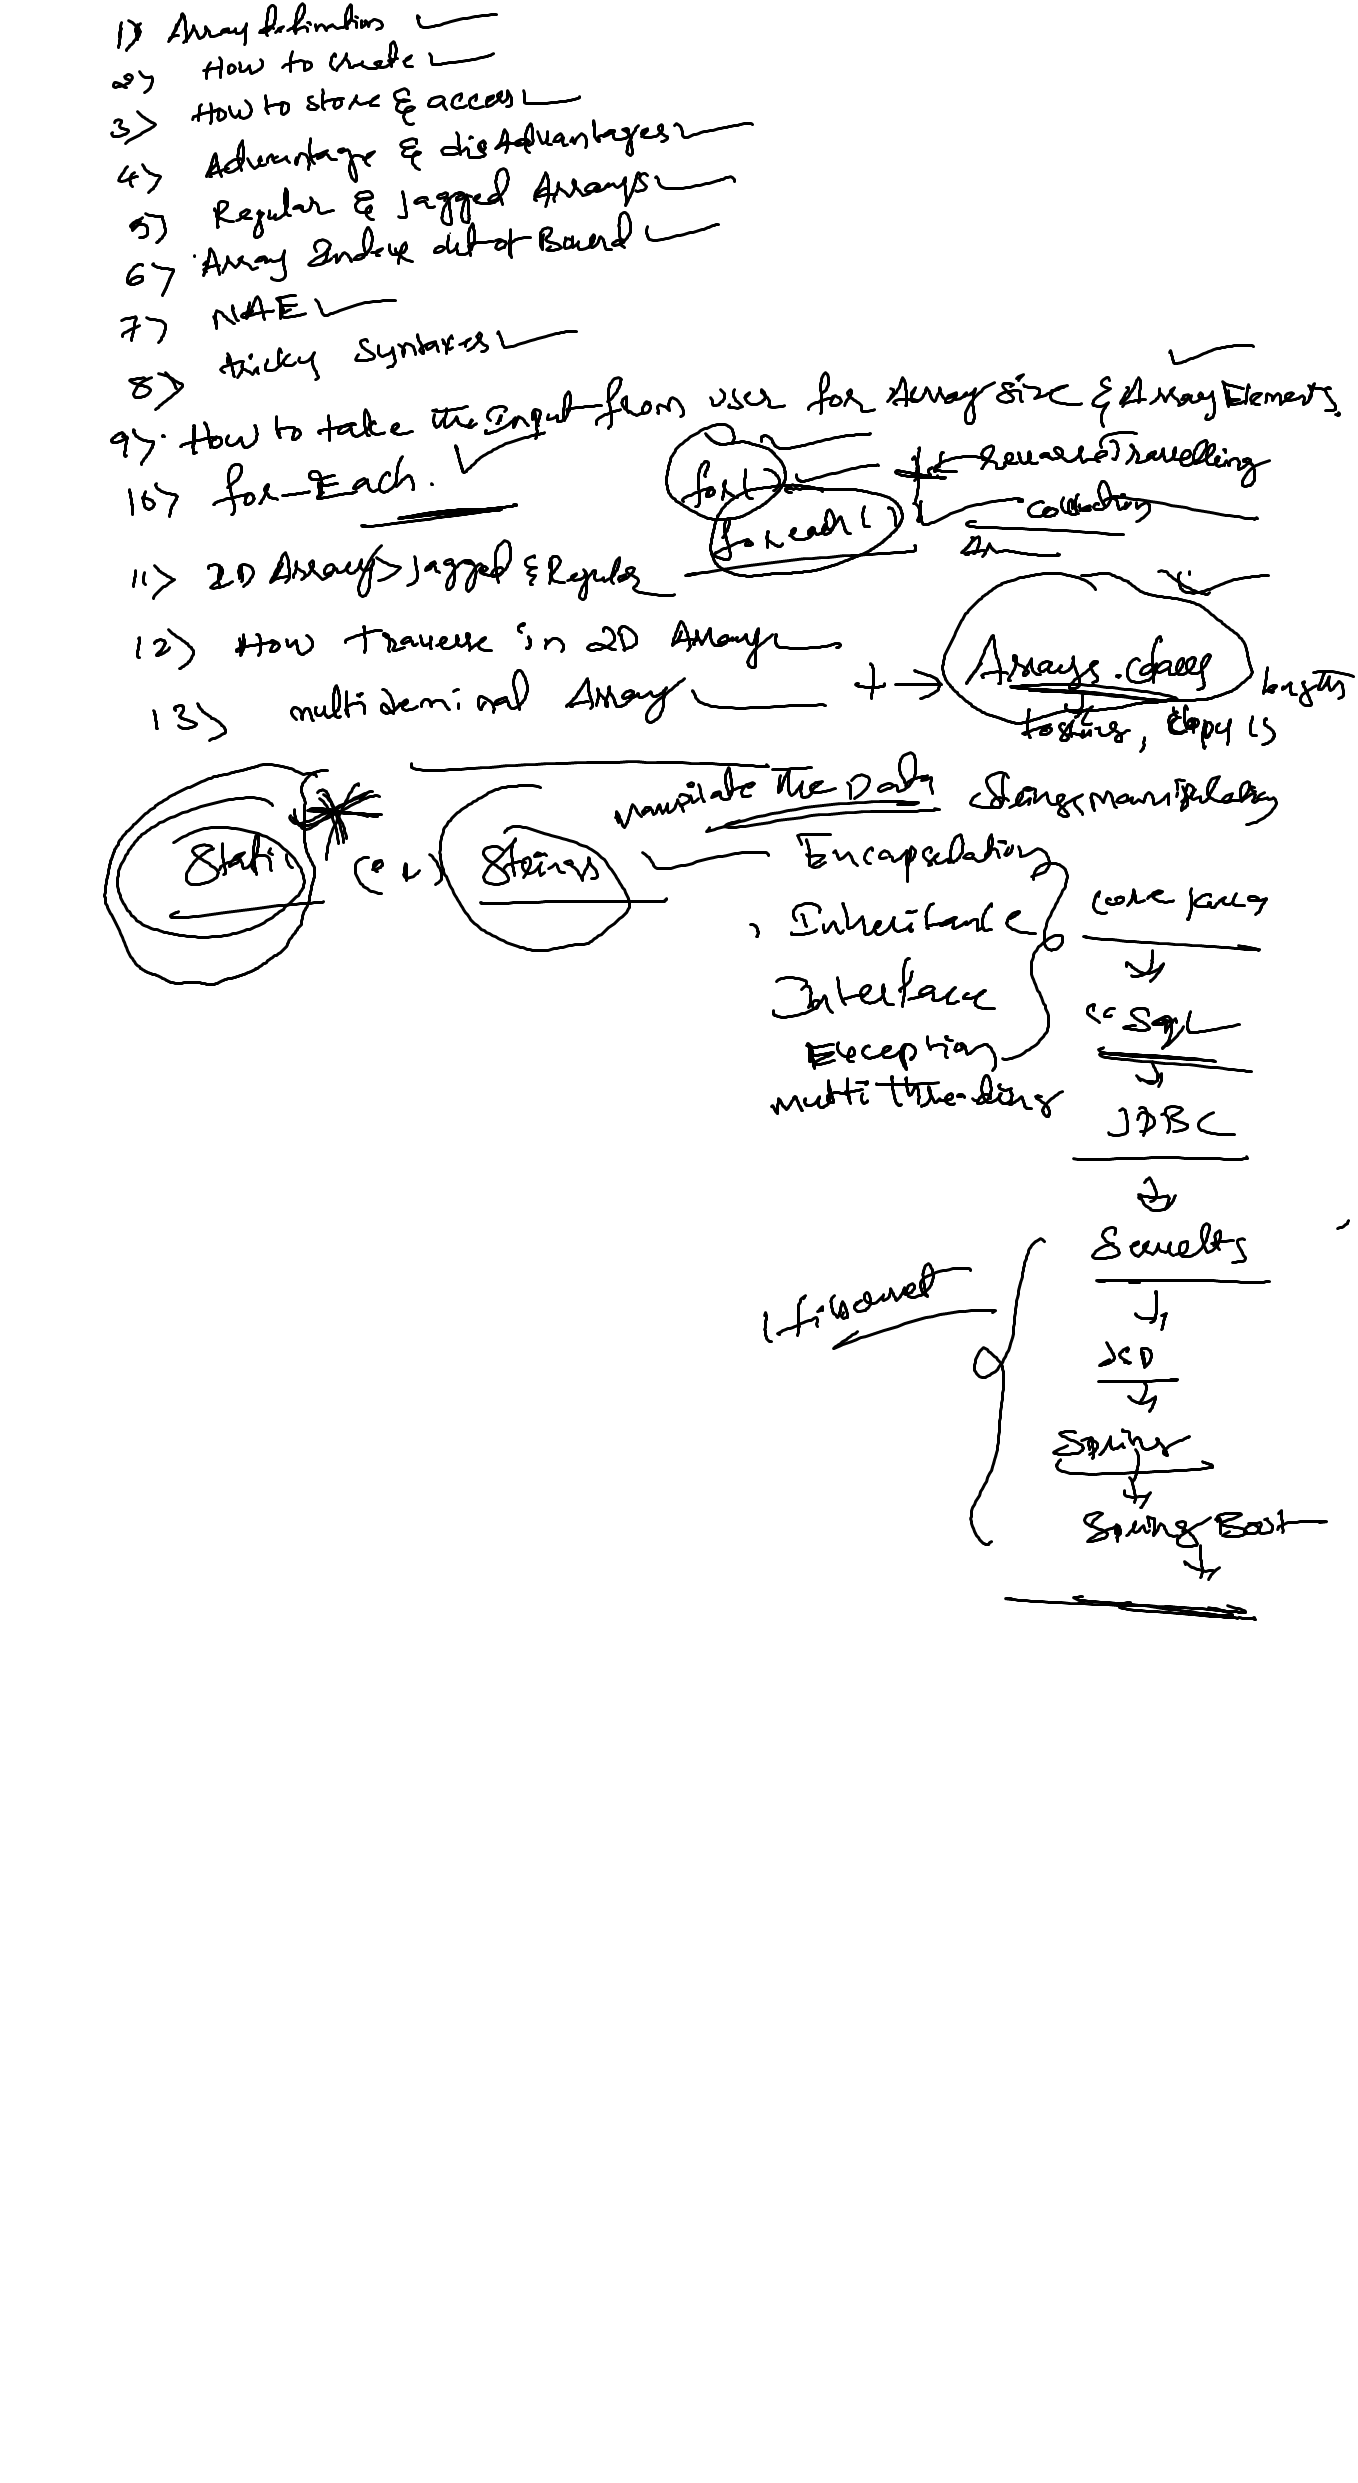 1) Array definitions
2) How to create
3) How to store & access
4) Advantage & disAdvantages
5) Regular & Jagged Arrays
6) Array Index out of Bound
7) NAE
8) tricky Syntaxes
9) How to take the Input from user for Array size & Array Elements.
10) for-Each.
for( )
Reverse Travelling
foreach ( )
collection
11) 2D Arrays Jagged & Regular
12) How Traverse in 2D Array
+ → Arrays.class
length
13) multi demi nal Array
tostring, copy is
manpilate The Data
Strings manipulation
Static (or) Strings
Encapsulation
core java
Inheritance
Interface
Sql
Exception
multi Threading
JDBC
Servelts
Spring
Spring Boot